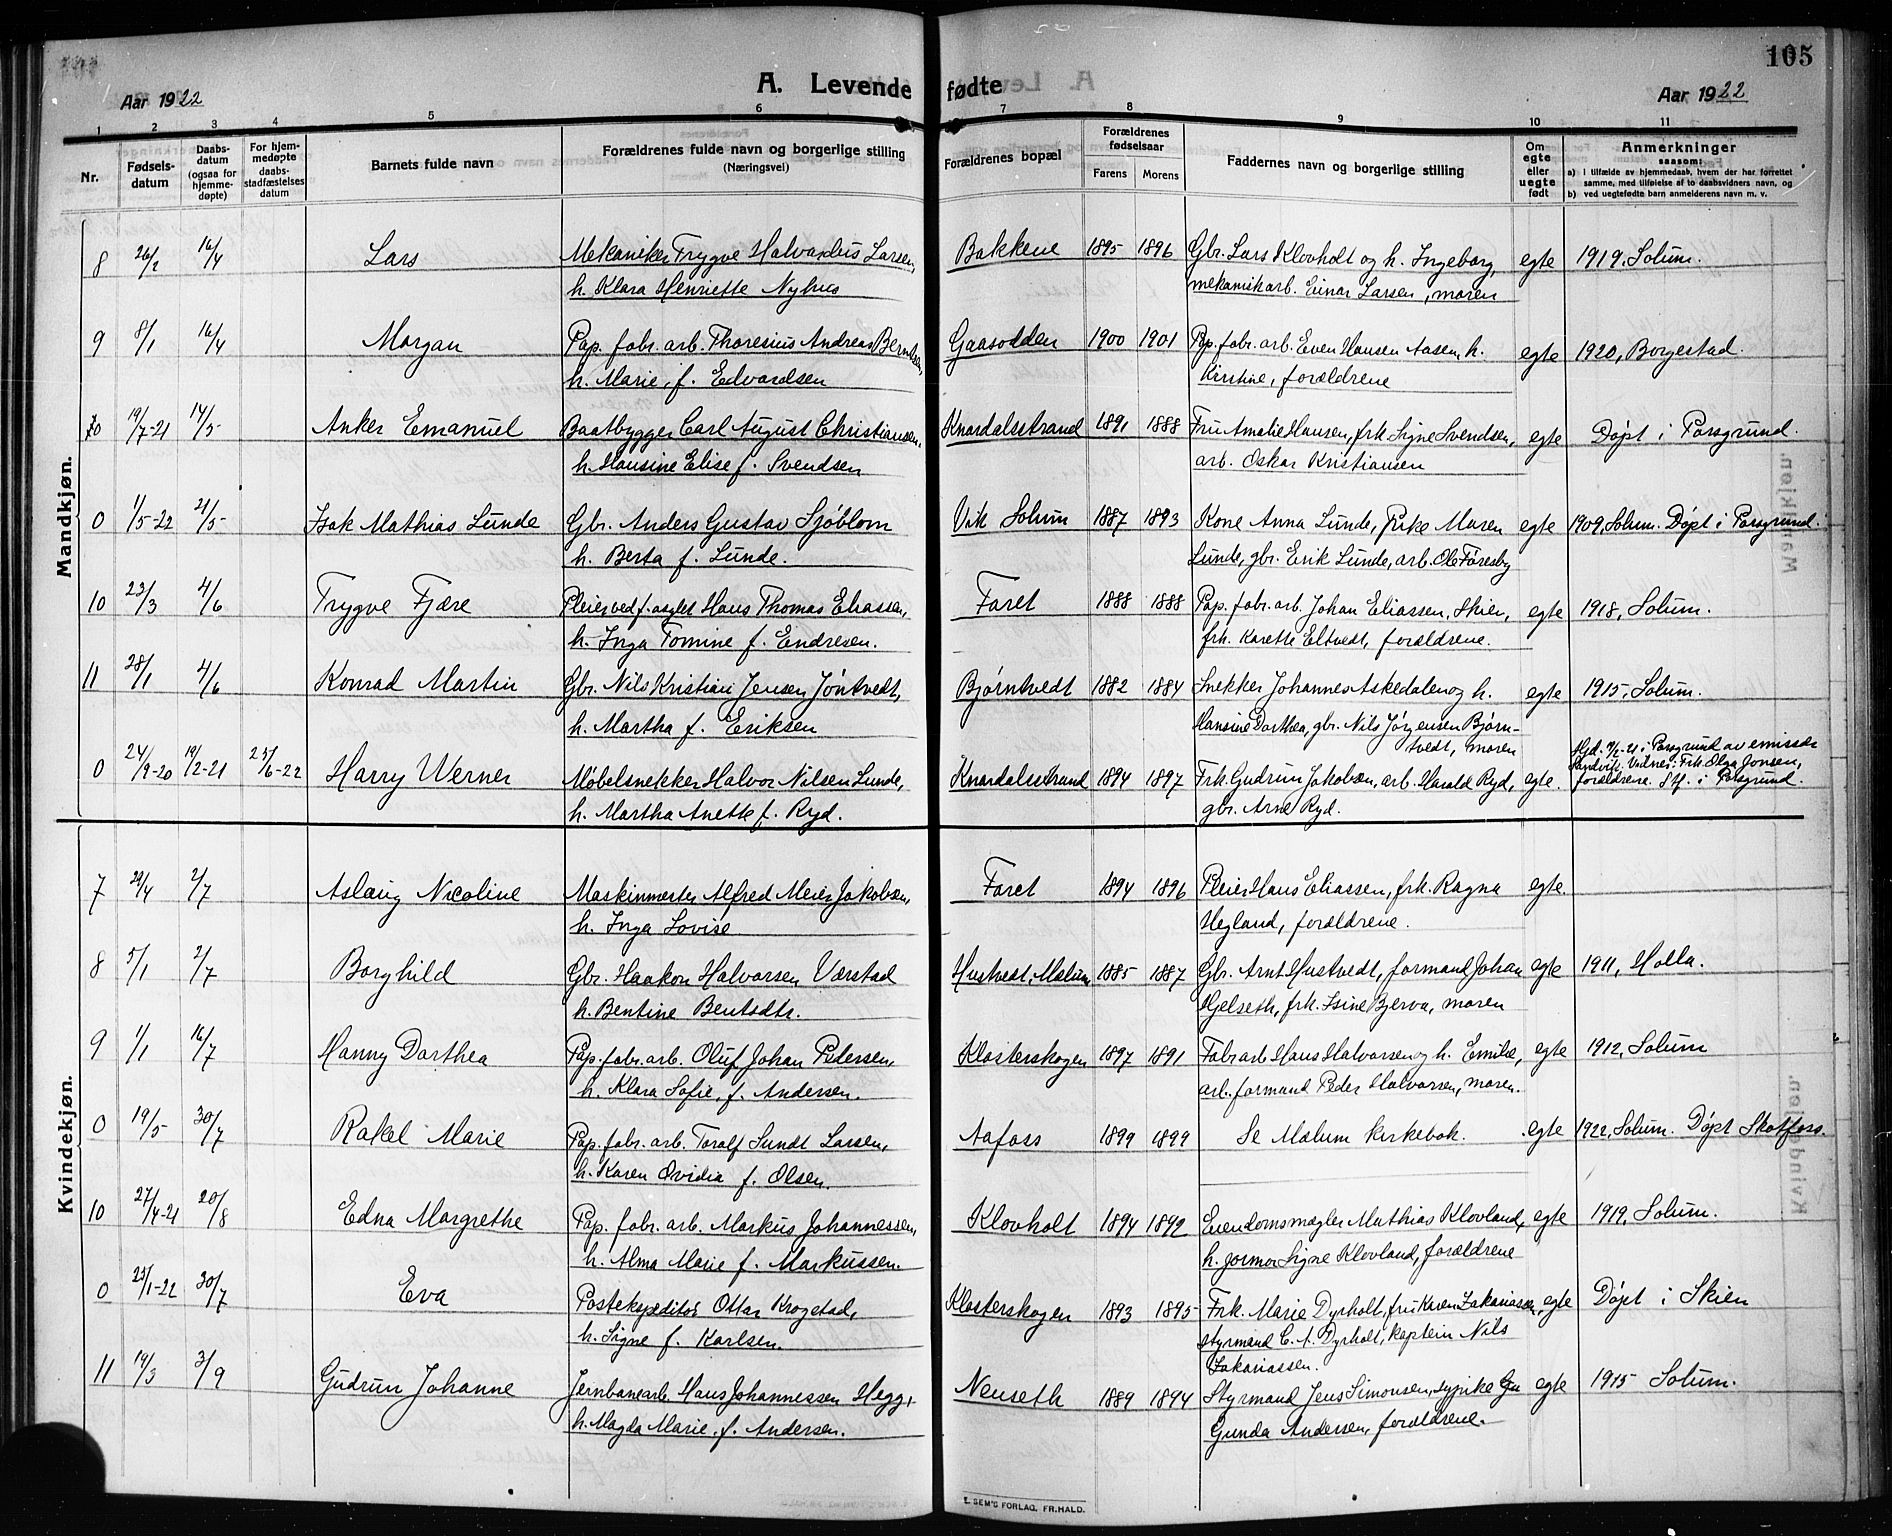 105
A. Levende fødte
Aar 1922
Aar 1922
1 2 3 4 5 6 7 8 9 10 11
Nr.
Fødsels-datum
Daabs-datum (ogsaa for hjemme-døpte)
For hjem-medøpte daabs-stadfæstelses datum
Barnets fulde navn
Forældrenes fulde navn og borgerlige stilling (Næringsvei)
Forældrenes bopæl
Forældrenes fødselsaar
Farens Morens
Faddernes navn og borgerlige stilling
Om egte eller uegte født
Anmerkninger
saasom:
a) i tilfælde av hjemmedaab, hvem der har forrettet samme, med tilføielse af to daabsvidners navn, og
b) ved uegtefødte barn anmelderens navn m. v.
Mandkjøn.
8 26/2 16/4 Lars Mekaniker Trygve Halvardus Larsen, Bakkene 1895 1896 Gbr. Lars Klovholt og h. Ingeborg, egte 1919, Solum.
h. Klara Henriette Nyhus mekanikarb. Einar Larsen, moren
9 8/1 16/4 Morgan Pap. fabr. arb. Thoresius Andreas Berntsen, Gaasodden 1900 1901 Pap. fabr. arb. Even Hansen Aasen, h. egte 1920, Borgestad.
h. Marie, f. Edvardsen Kirstine, forældrene
0 19/7-21 14/5 Anker Emanuel Baatbygger Carl August Christiansen, Knardalsstrand 1891 1888 Fru Amalie Hansen, frk. Signe Svendsen, egte Døpt i Porsgrund.
h. Hansine Elise f. Svendsen arb. Oskar Kristiansen
0 1/5-22 21/5 Isak Mathias Lunde Gbr. Anders Gustav Sjöblom Vik Solum 1887 1893 Kone Anna Lunde, Pike Maren egte 1909, Solum. Døpt i Porsgrund.
h. Berta f. Lunde. Lunde, gbr. Erik Lunde, arb. Ole Føresby
10 23/3 4/6 Trygve Fjære Pleier ved f. asylet Hans Thomas Eliassen, Faret 1888 1888 Pap. fabr. arb. Johan Eliassen, Skien, egte 1918, Solum.
h. Inga Tomine f. Endresen. frk. Karette Eltvedt, forældrene.
11 28/1 4/6 Konrad Martin Gbr. Nils Kristian Jensen Jøntvedt, Bjørntvedt 1882 1884 Snekker Johannes Askedalen og h. egte 1915, Solum.
h. Martha f. Eriksen Hansine Dorthea, gbr. Nils Jørgensen Bjørn-
tvedt, moren
0 24/9-20 19/2-21 25/6-22 Harry Werner Møbelsnekker Halvor Nilsen Lunde, Knardalsstrand 1894 1897 Frk. Gudrun Jakobsen, arb. Harald Ryd, egte. Hjd. 19/2-21 i Porsgrund av emissær
Sandvik. Vidner: Frk. Olga Jonsen,
h. Martha Anette f. Ryd. gbr. Arne Ryd. forældrene. Stf. i Porsgrund.
Kvindekjøn.
7 29/4 2/7 Aslaug Nicoline Maskinmester Alfred Meier Jakobsen, Faret 1894 1896 Pleier Hans Eliassen, frk. Ragna egte
h. Inga Lovise Hegland, forældrene.
8 5/1 2/7 Borghild Gbr. Haakon Halvorsen Værstad Hustvedt, Mælum 1885 1887 Gbr. Arnt Hustvedt, formand Johan egte 1911, Holla.
h. Bentine Bentsdtr. Hjelseth, frk. Isine Bjerva, moren
9 1/1 16/7 Hanny Dorthea Pap. fabr. arb. Oluf Johan Pedersen, Klosterskogen 1897 1891 Fabr arb Hans Halvorsen og h. Emilie, egte 1912, Solum
h. Klara Sofie, f. Andersen. arb. formand Peder Halvorsen, moren.
0 19/5 30/7 Rakel Marie Pap. fabr. arb. Toralf Sundt Larsen, Aafoss 1899 1899 Se Mælum kirkebok. egte 1922, Solum. Døpt Skotfoss.
h. Karen Ovidia f. Olsen.
10 27/4-21 20/8 Edna Margrethe Pap. fabr. arb. Markus Johannessen, Klovholt 1894 1892 Eiendomsmægler Mathias Klovland, egte 1919, Solum.
h. Alma Marie f. Markussen. h. jormor Signe Klovland, forældrene
0 25/1-22 30/7 Eva Postekspeditør Ottar Krogstad, Klosterskogen 1893 1895 Frk. Marie Dyrholt, fru Karen Zakariassen, egte Døpt i Skien
h. Signe f. Karlsen. styrmand C. A. Dyrholt, kaptein Nils
Zakariassen.
11 19/3 3/9 Gudrun Johanne Jernbanearb. Hans Johannessen Hegg, Nenseth 1889 1894 Styrmand Jens Simonsen, sypike Gu egte 1915 Solum.
h. Magda Marie, f. Andersen. Gunda Andersen, forældrene.
E. SEM'S FORLAG, FR.HALD.